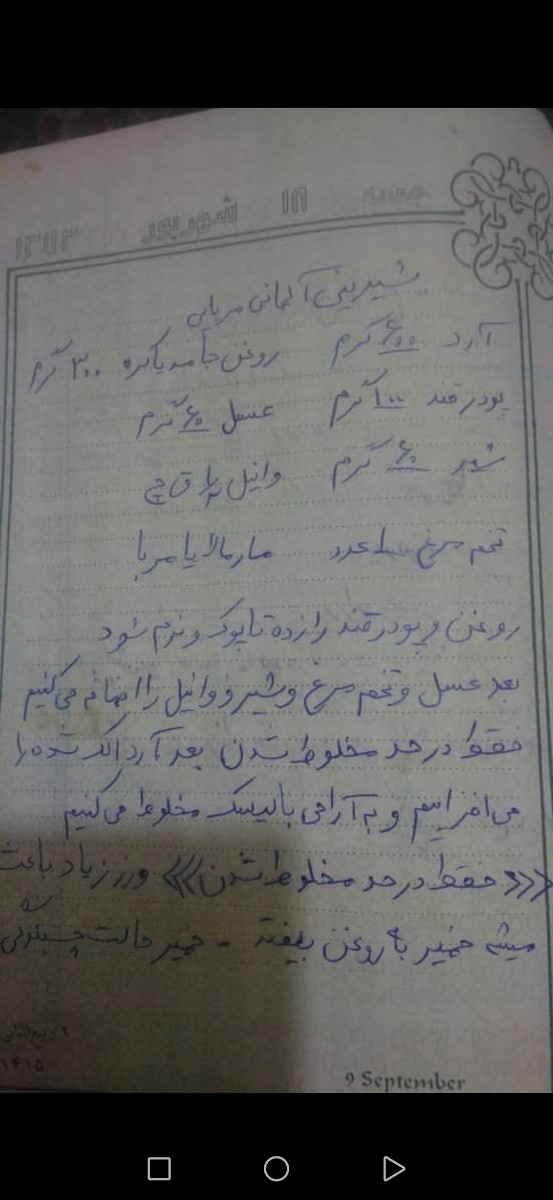 ۱۸ شهریور ۱۳۷۳
شیرینی آلمانی مربایی
آرد ۶۰۰ گرم روغن جامد یا کره ۳۰۰ گرم
پودر قند ۱۰۰ گرم عسل ۶۰ گرم
شیر ۶۰ گرم وانیل ۱/۲ ق چ
تخم مرغ ۱ عدد مارمالاد یا مربا
روغن و پودر قند را زده تا پوک و نرم شود
بعد عسل و تخم مرغ و شیر و وانیل را اضافه می کنیم
فقط در حد مخلوط شدن بعد آرد الک شده را
می افزاییم و به آرامی با لیسک مخلوط می کنیم
<<< فقط در حد مخلوط شدن >>> ورز زیاد باعث
میشه خمیر به روغن بیفته - خمیر حالت چسبندگی
۲ ربیع الثانی
۱۴۱۵
9 September